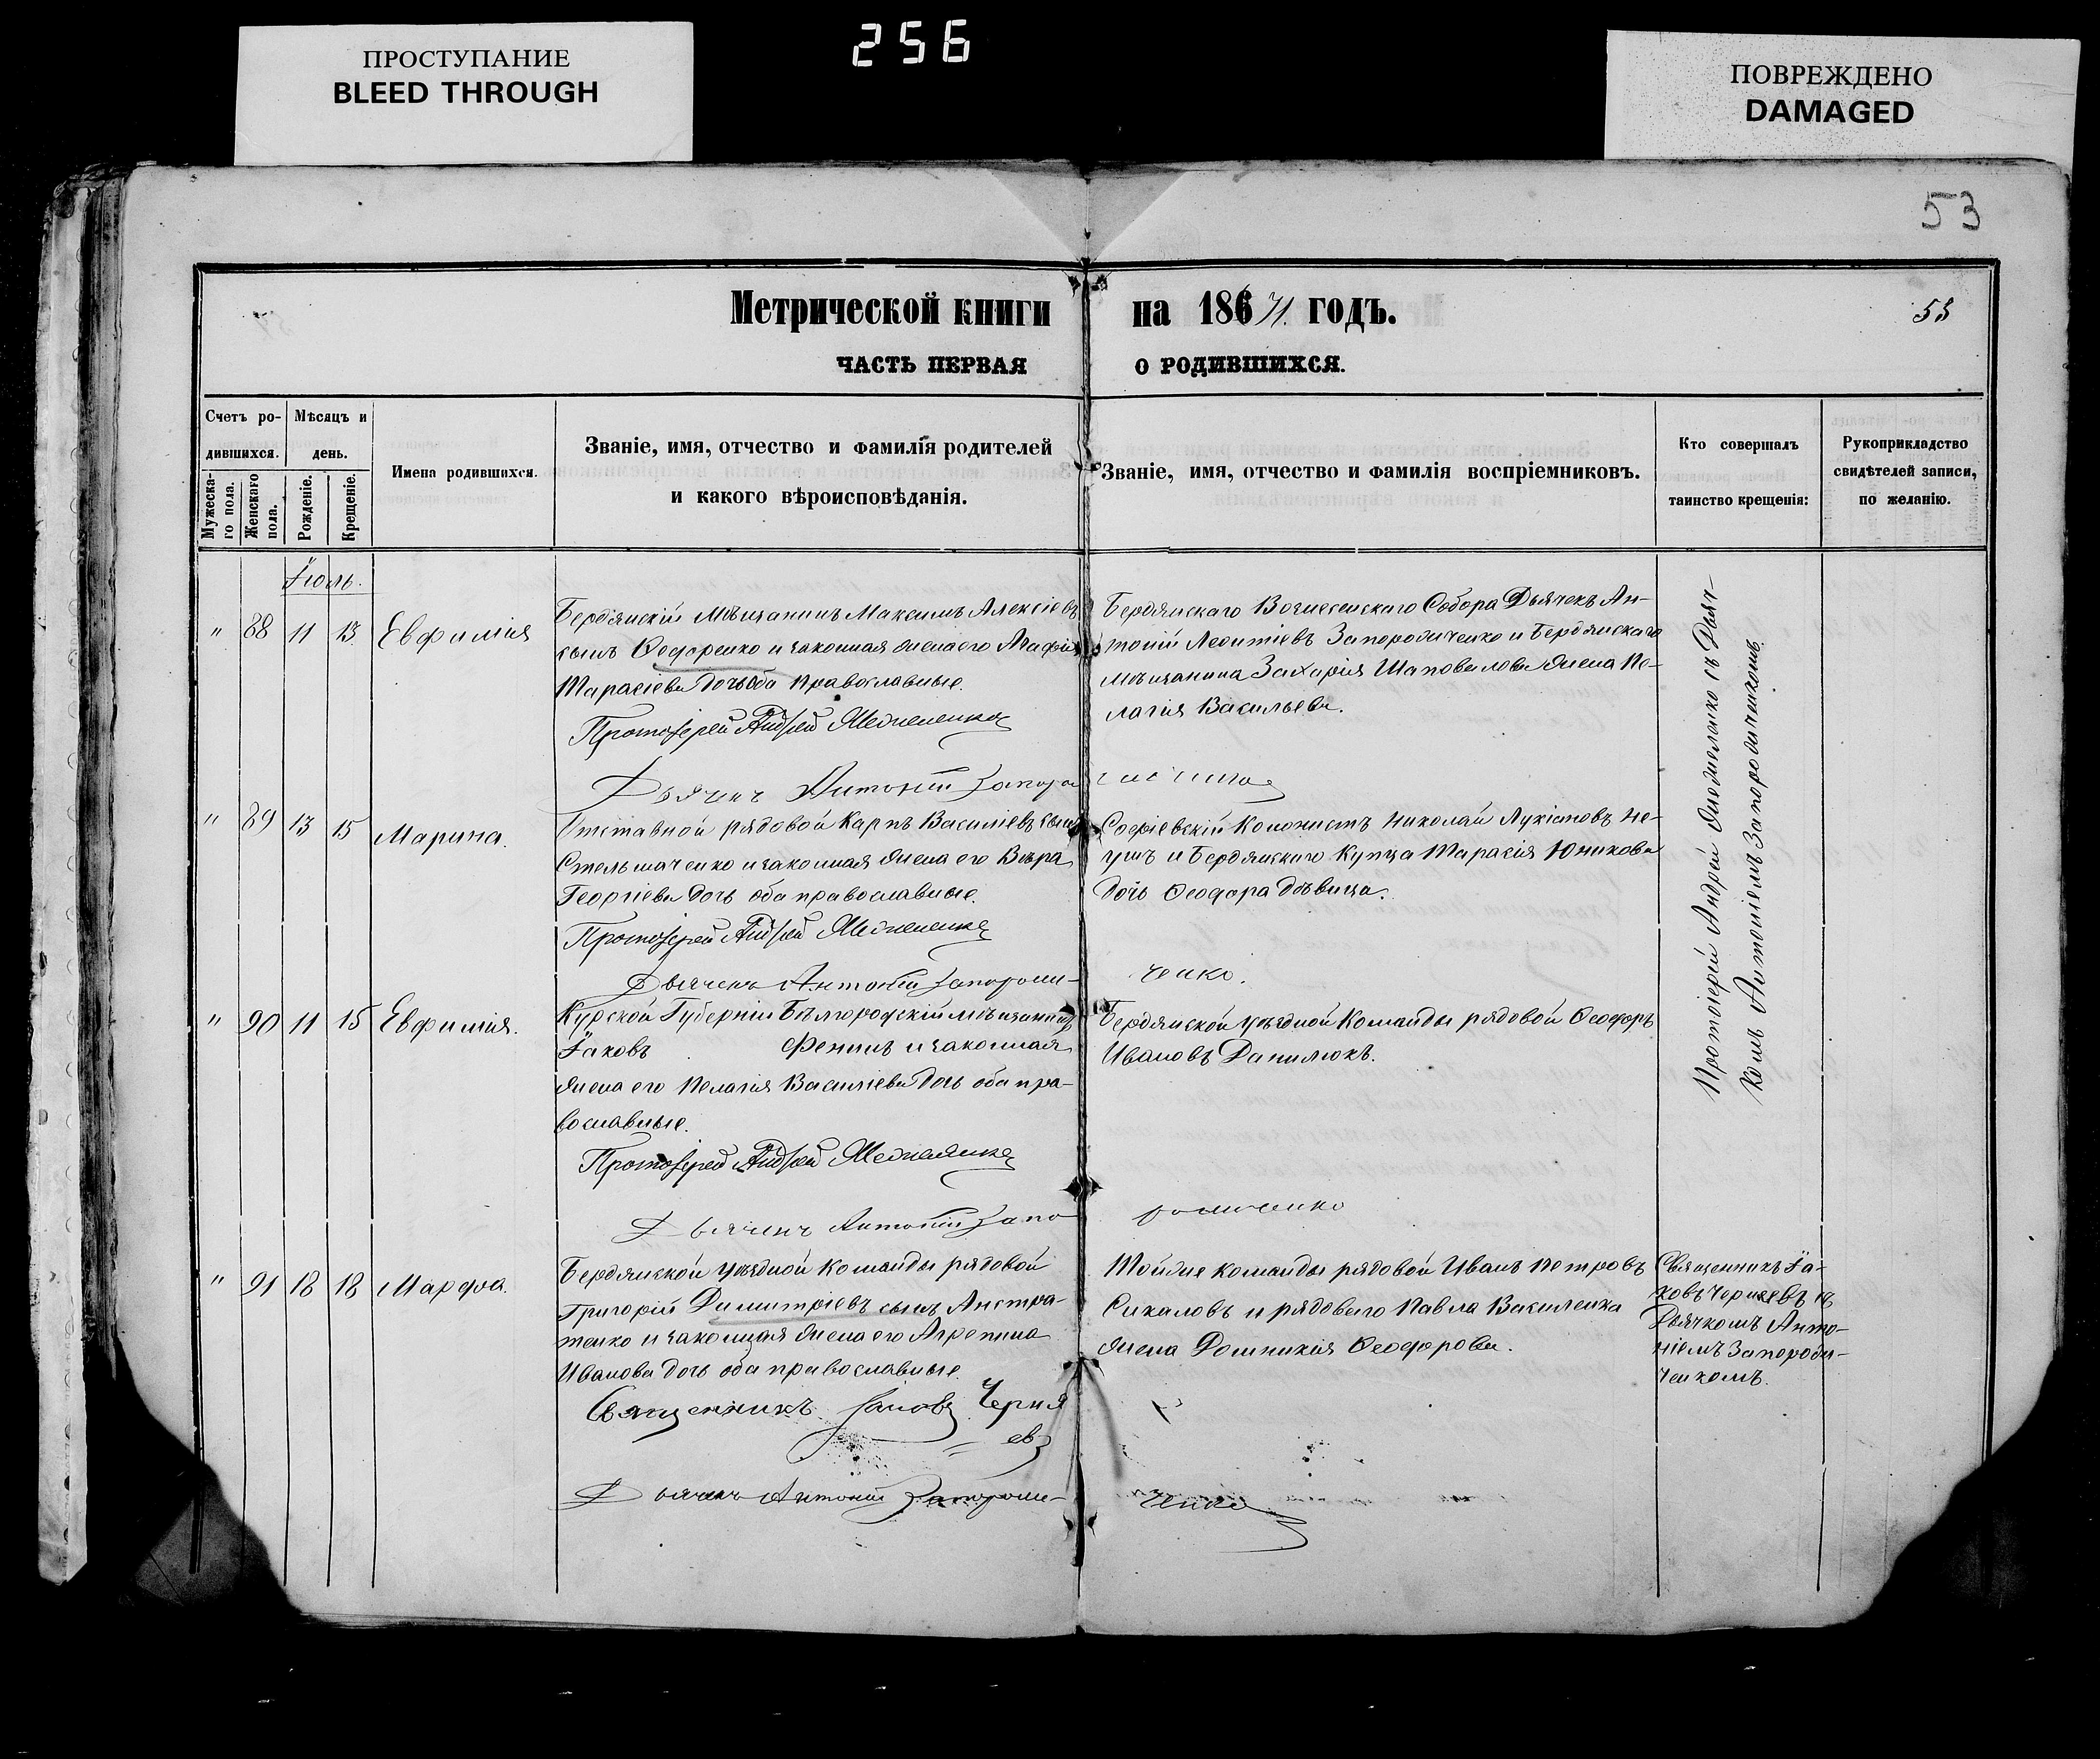 256
ПРОСТУПАНИЕ
BLEED THROUGH
ПОВРЕЖДЕНО
DAMAGED
53
Метрической книги на 18671. годъ.
53
ЧАСТЬ ПЕРВАЯ О РОДИВШИХСЯ.
Счетъ ро-
дившихся.
Мужеска-
го пола.
Женскаго
пола.
Мѣсяцъ и
день.
Рожденіе.
Крещеніе.
Имена родившихся.
Званіе, имя, отчество и фамилія родителей
и какого вѣроисповѣданія.
Званіе, имя, отчество и фамилія воспріемниковъ.
Кто совершалъ
таинство крещенія:
Рукоприкладство
свидѣтелей записи,
по желанію.
Іюль.
" 88 11 13 Евфимія
Бердянскій Мѣщанинъ Максимъ Алексіевъ
сынъ Ѳедоренко и законная жена его
Тарасіева дочь оба Православные.
Протоіерей Андрей
Дьячекъ Антоній Запорожченко
Бердянскаго Вознесенскаго Собора Дьячекъ Ан-
тоній Леонтіевъ Запорожченко и Бердянскаго
мѣщанина Захарія Шаповалова жена Пе-
лагія Васильева.
" 89 13 15 Марина.
Отставной рядовой Карпъ Василіевъ сынъ
Стельмаченко и законная жена его Вѣра
Георгіева дочь оба православные.
Протоіерей Андрей
Дьячекъ Антоній Запорож-
ченко.
Софіевскій Колонистъ Николай Лукіановъ
и Бердянскаго Купца Тарасія Юникова
дочь Ѳеодора дѣвица.
" 90 11 15 Евфимія.
Курской Губерніи Бѣлгородскій мѣщанинъ
Іаковъ Фенинъ и законная
жена его Пелагія Василіева дочь оба пра-
вославные.
Протоіерей Андрей
Дьячекъ Антоній Запо
рожченко
Бердянской уѣздной Команды рядовой Ѳеодоръ
Ивановъ Данилюкъ.
Протоіерей Андрей съ Дьяч-
комъ Антоніемъ Запорожченкомъ
" 91 18 18 Марфа.
Бердянской уѣздной Команды рядовой
Григорій Димитріевъ сынъ Анстра-
тенко и законная жена его Агрепина
Иванова дочь оба православные.
Священникъ Іаковъ Черня
евъ
Дьячекъ Антоній Запорож-
ченко
Тойже команды рядовой Иванъ Петровъ
Сикаловъ и рядоваго Павла Василенка
жена Домникія Ѳеодорова.
Священникъ Іа-
ковъ Черняевъ съ
Дьячкомъ Анто-
ніемъ Запорож-
ченкомъ.